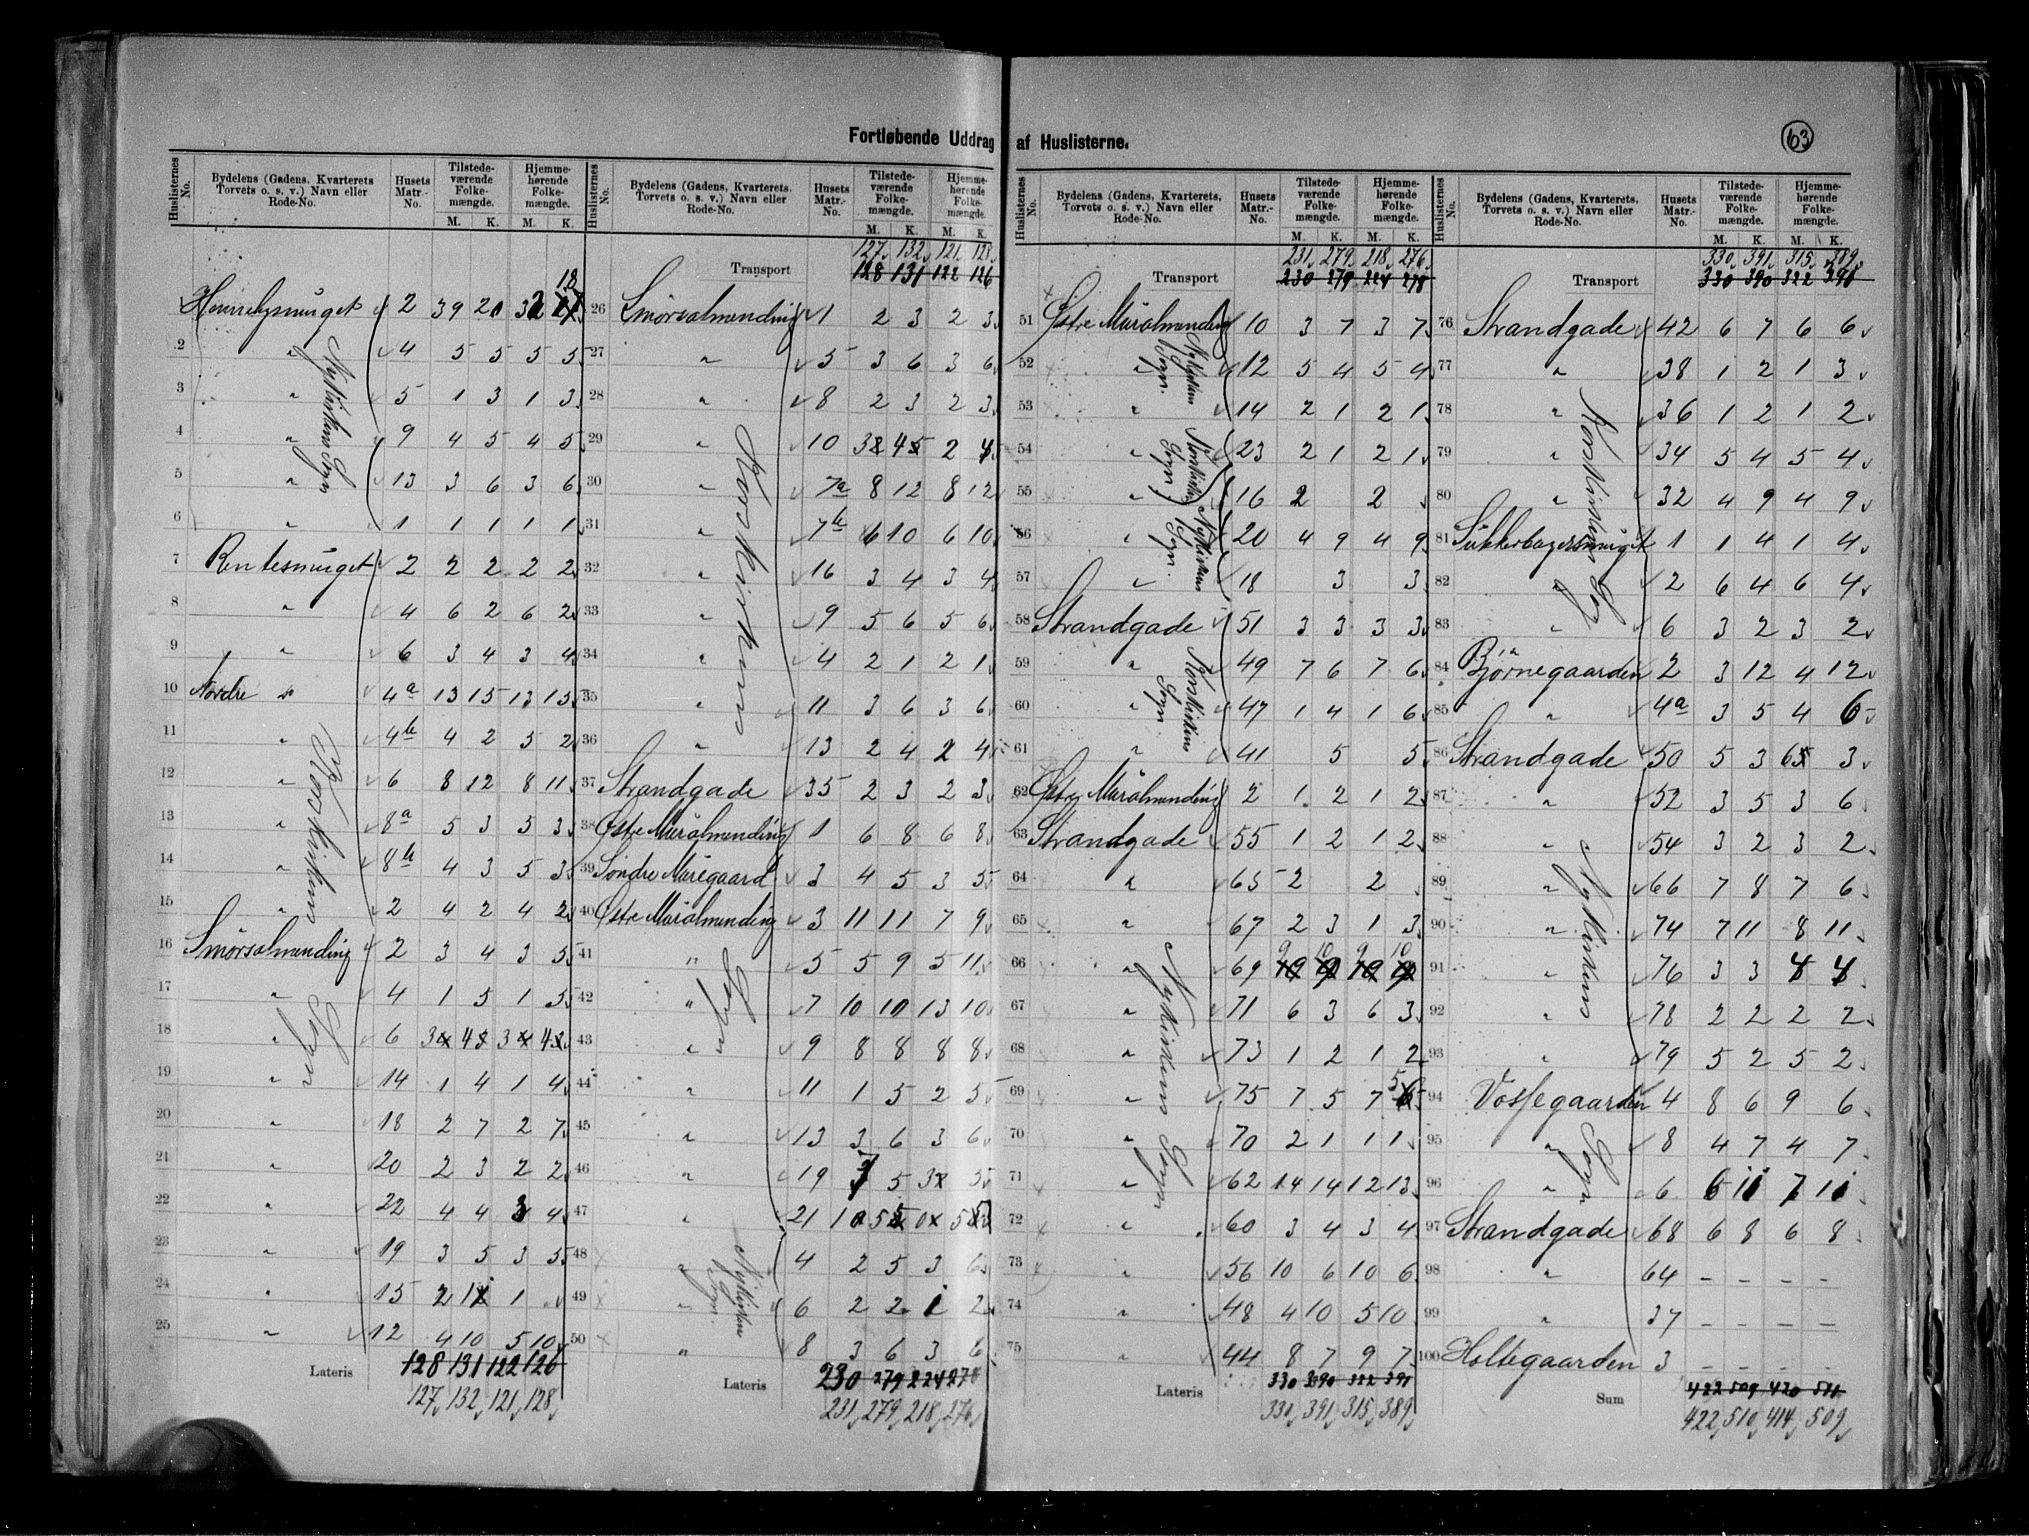 Fortløbende Uddrag af Huslisterne.
63
Huslisternes No. Bydelens (Gadens, Kvarterets Torvets o. s. v.) Navn eller Rode-No. Husets Matr.-No. Tilstedeværende Folkemængde. M. K. Hjemmehørende Folkemængde. M. K.
2 39 20 32 18
2 " 4 5 5 5 5
3 " 5 1 3 1 3
4 " 9 4 5 4 5
5 " 13 3 6 3 6
6 " 1 1 1 1 1
7 Rentesmuget 2 2 2 2 2
8 " 4 6 2 6 2
9 " 6 3 4 3 4
10 Nordre do 4a 13 15 13 15
11 " 4b 4 2 5 2
12 " 6 8 12 8 11
13 " 8a 5 3 5 3
14 " 8b 4 3 5 3
15 " 2 4 2 4 2
16 Smørsalmending 2 3 4 3 5
17 " 4 1 5 1 5
18 " 6 3 4 3 4
19 " 14 1 4 1 4
20 " 18 2 7 2 7
21 " 20 2 3 2 2
22 " 22 4 4 3 4
23 " 19 3 5 3 5
24 " 15 2 1 1
25 " 12 4 10 5 10
Nykirkens Sogn
Korskirkens Sogn
Lateris 128 131 122 126
127 132 121 128
Huslisternes No. Bydelens (Gadens, Kvarterets, Torvets o. s. v.) Navn eller Rode-No. Husets Matr.-No. Tilstedeværende Folkemængde. M. K. Hjemmehørende Folkemængde. M. K.
127 132 121 128
Transport 128 131 122 126
26 Smørsalmending 1 2 3 2 3
27 " 5 3 6 3 6
28 " 8 2 3 2 3
29 " 10 3 4 2 4
30 " 7a 8 12 8 12
31 " 7b 6 10 6 10
32 " 16 3 4 3 4
33 " 9 5 6 5 6
34 " 4 2 1 2 1
35 " 11 3 6 3 6
36 " 13 2 4 2 4
37 Strandgade 35 2 3 2 3
38 Østre Muralmending 1 6 8 6 8
39 Søndre Muregaard 3 4 5 3 5
40 Østre Muralmending 3 11 11 7 9
41 " 5 5 9 5 11
42 " 7 10 10 13 10
43 " 9 8 8 8 8
44 " 11 1 5 2 5
45 " 13 3 6 3 6
46 " 19 5 3 5
47 " 21
48 " 4 2 5 3 6
49 " 6 2 2 1 2
50 " 8 3 6 3 6
Korskirkens Sogn
Nykirkens Sogn.
Lateris 230 279 224 278
231 279 218 276
Huslisternes No. Bydelens (Gadens, Kvarterets, Torvets o. s. v.) Navn eller Rode-No. Husets Matr.-No. Tilstedeværende Folkemængde. M. K. Hjemmehørende Folkemængde. M. K.
231 279 218 276
Transport 230 279 224 278
51 Østre Muralmending 10 3 7 3 7
52 " 12 5 4 5 4
53 " 14 2 1 2 1
54 " 23 2 1 2 1
55 " 16 2 2
56 " 20 4 9 4 9
57 " 18 3 3
58 Strandgade 51 3 3 3 3
59 " 49 7 6 7 6
60 " 47 1 4 1 6
61 " 41 5 5
62 Østre Muralmending 2 1 2 1 2
63 Strandgade 55 1 2 1 2
64 " 65 2 2
65 " 67 2 3 1 3
66 " 69 9 10 9 10
67 " 71 6 3 6 3
68 " 73 1 2 1 2
69 " 75 7 5 7 5
70 " 70 2 1 1 1
71 " 62 14 14 12 13
72 " 60 3 4 3 4
73 " 56 10 6 10 6
74 " 48 4 10 5 10
75 " 44 8 7 9 7
Nykirkens Sogn.
Nykirkens Sogn.
Korskirkens Sogn.
Nykirkens Sogn
Lateris 330 390 322 391
330 391 315 389
Huslisternes No. Bydelens (Gadens, Kvarterets, Torvets o. s. v.) Navn eller Rode-No. Husets Matr.-No. Tilstedeværende Folkemængde. M. K. Hjemmehørende Folkemængde. M. K.
330 391 315 389
Transport 330 390 322 391
76 Strandgade 42 6 7 6 6
77 " 38 1 2 1 3
78 " 36 1 2 1 2
79 " 34 5 4 5 4
80 " 32 4 9 4 9
81 Sukkerbagersmuget 1 1 4 1 4
82 " 2 6 4 6 4
83 " 6 3 2 3 2
84 Bjørnegaarden 2 3 12 4 12
85 " 4a 3 5 4 6
86 Strandgade 50 5 3 6 3
87 " 52 3 5 3 6
88 " 54 3 2 3 2
89 " 66 7 8 7 6
90 " 74 7 11 8 11
91 " 76 3 3 4 4
92 " 78 2 2 2 2
93 " 79 5 2 5 2
94 Vossegaarden 4 8 6 9 6
95 " 8 4 7 4 7
96 " 6 6 11 7 11
97 Strandgade 68 6 8 6 8
98 " 64 – – – –
99 " 37 – – – –
100 Holtegaarden 3 – – – –
Korskirkens Sog
Nykirkens Sogn
Sum 422 509 420 511
422 510 414 509